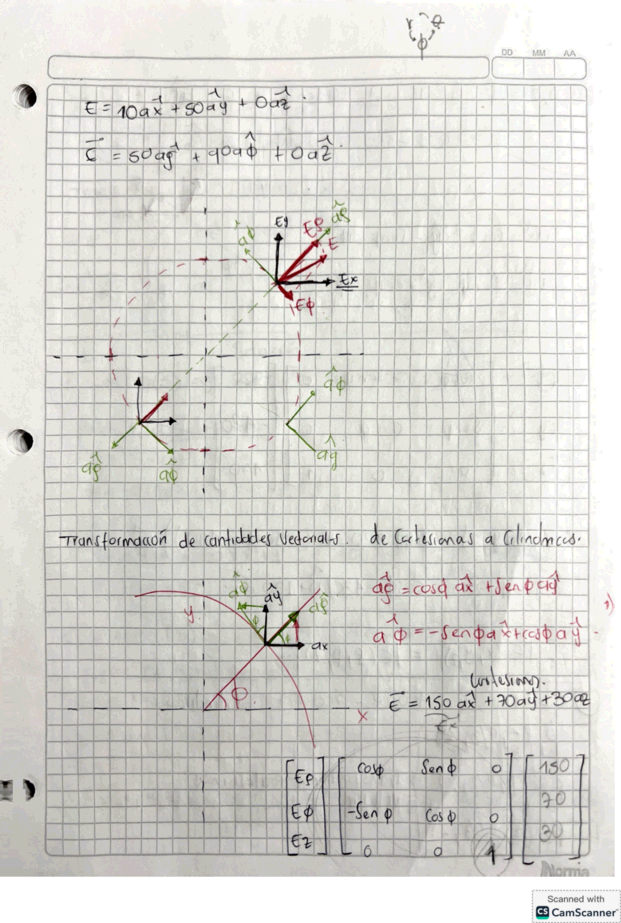 r z
φ
DD MM AA
E = 10 ax + 50 ay + 0 az
E = 50 aρ + 90 aφ + 0 az
Ey Eρ aρ
aφ E
Ex
Eφ
aφ
aρ aφ aρ
Transformación de cantidades vectoriales. de Cartesianas a Cilindricas.
aφ ay aρ
y
ax
φ
x
aρ = cosφ ax + Senφ ay
1)
aφ = -Senφ ax + cosφ ay
Cartesianas.
E = 150 ax + 70 ay + 30 az
Ex
[Eρ] [cosφ Senφ 0] [150]
[Eφ] [-Sen φ Cosφ 0] [70]
[Ez] [0 0 1] [30]
Norma
Scanned with
CS CamScanner